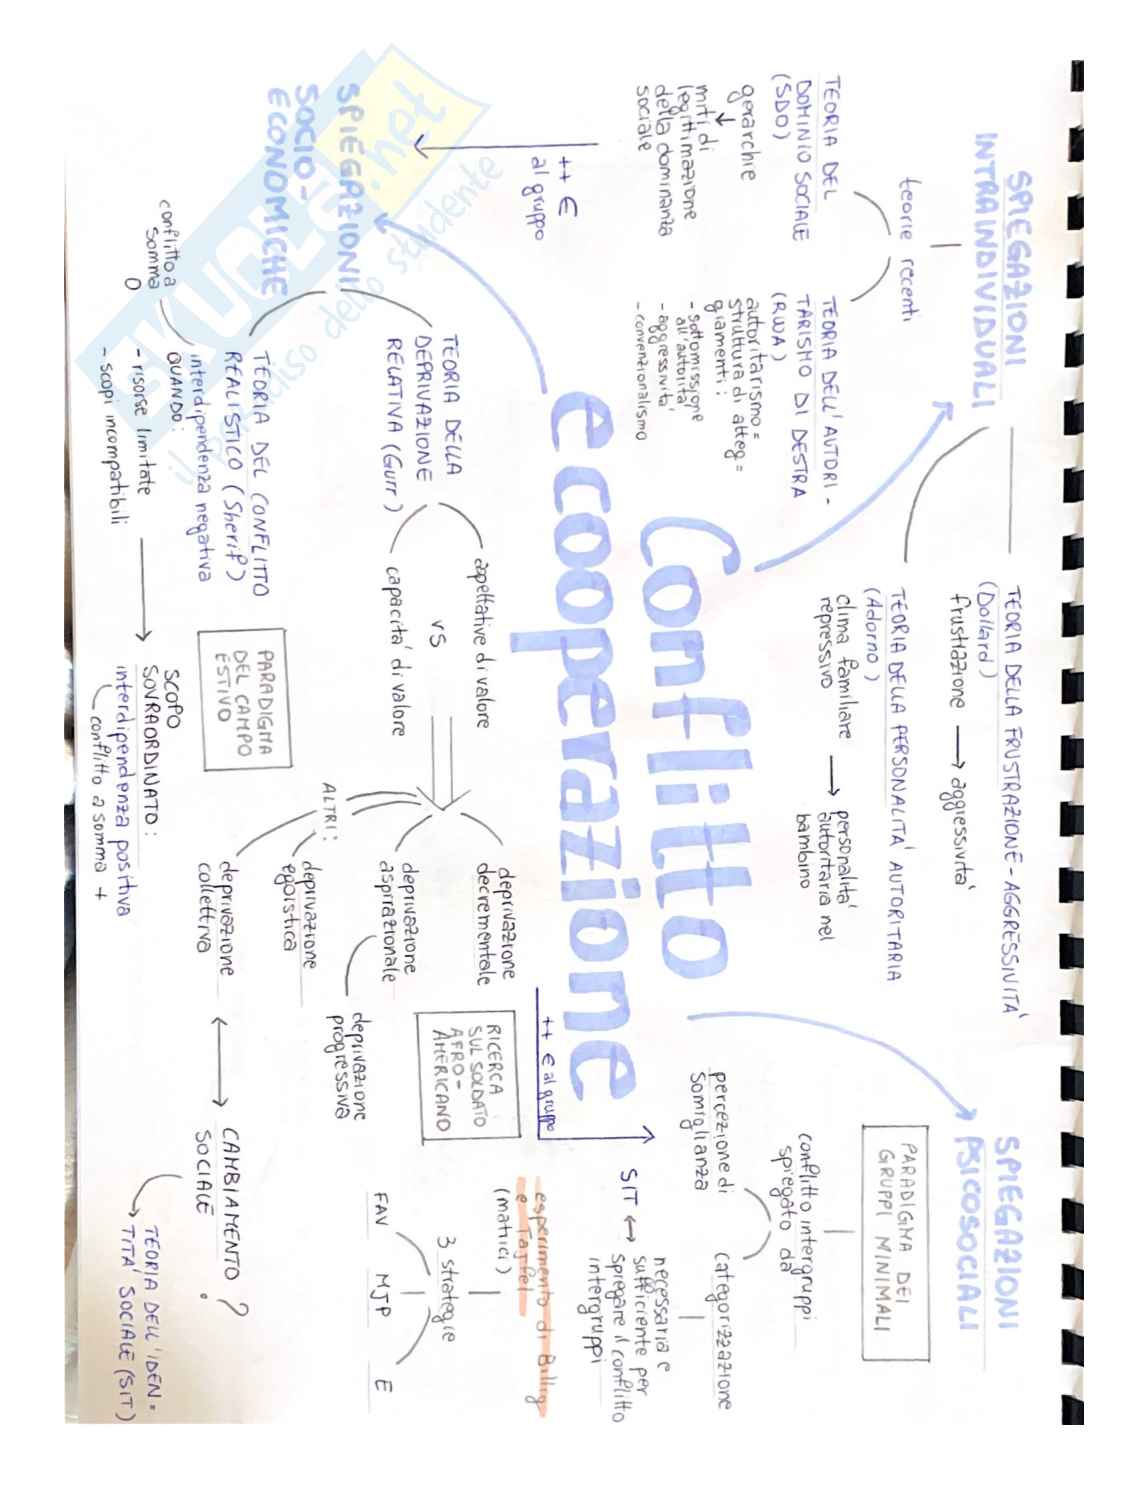 Conflitto
e cooperazione
SPIEGAZIONI
INTRAINDIVIDUALI
teorie recenti
TEORIA DEL
DOMINIO SOCIALE
(SDO)
gerarchie
miti di
legittimazione
della dominanza
sociale
TEORIA DELL'AUTORI-
TARISMO DI DESTRA
(RWA)
autoritarismo =
struttura di atteg=
giamenti:
- sottomissione
all'autorità
- aggressività
- convenzionalismo
TEORIA DELLA FRUSTRAZIONE-AGGRESSIVITÀ
(Dollard)
frustrazione → aggressività
TEORIA DELLA PERSONALITÀ AUTORITARIA
(Adorno)
clima familiare → personalità
repressivo autoritaria nel
bambino
++ €
al gruppo
SPIEGAZIONI
SOCIO-
ECONOMICHE
TEORIA DELLA
DEPRIVAZIONE
RELATIVA (Gurr)
aspettative di valore
vs
capacità di valore
deprivazione
decrementale
deprivazione
aspirazionale
deprivazione
progressiva
ALTRI:
deprivazione
egoistica
deprivazione
collettiva
RICERCA
SUL SOLDATO
AFRO-
AMERICANO
CAMBIAMENTO ?
SOCIALE
TEORIA DELL'IDEN=
TITÀ SOCIALE (SIT)
TEORIA DEL CONFLITTO
REALISTICO (Sherif)
conflitto a
somma
0
interdipendenza negativa
QUANDO:
- risorse limitate
- scopi incompatibili
PARADIGMA
DEL CAMPO
ESTIVO
SCOPO
SOVRAORDINATO:
interdipendenza positiva
conflitto a somma +
++ € al gruppo
SPIEGAZIONI
PSICOSOCIALI
PARADIGMA DEI
GRUPPI MINIMALI
conflitto intergruppi
spiegato da
percezione di
somiglianza
categorizzazione
SIT ↔ necessaria e
sufficiente per
spiegare il conflitto
intergruppi
esperimento di Billig
e Tajfel
(matrici)
3 strategie
FAV
MJP
E
SKUOLA.net
il paradiso dello studente